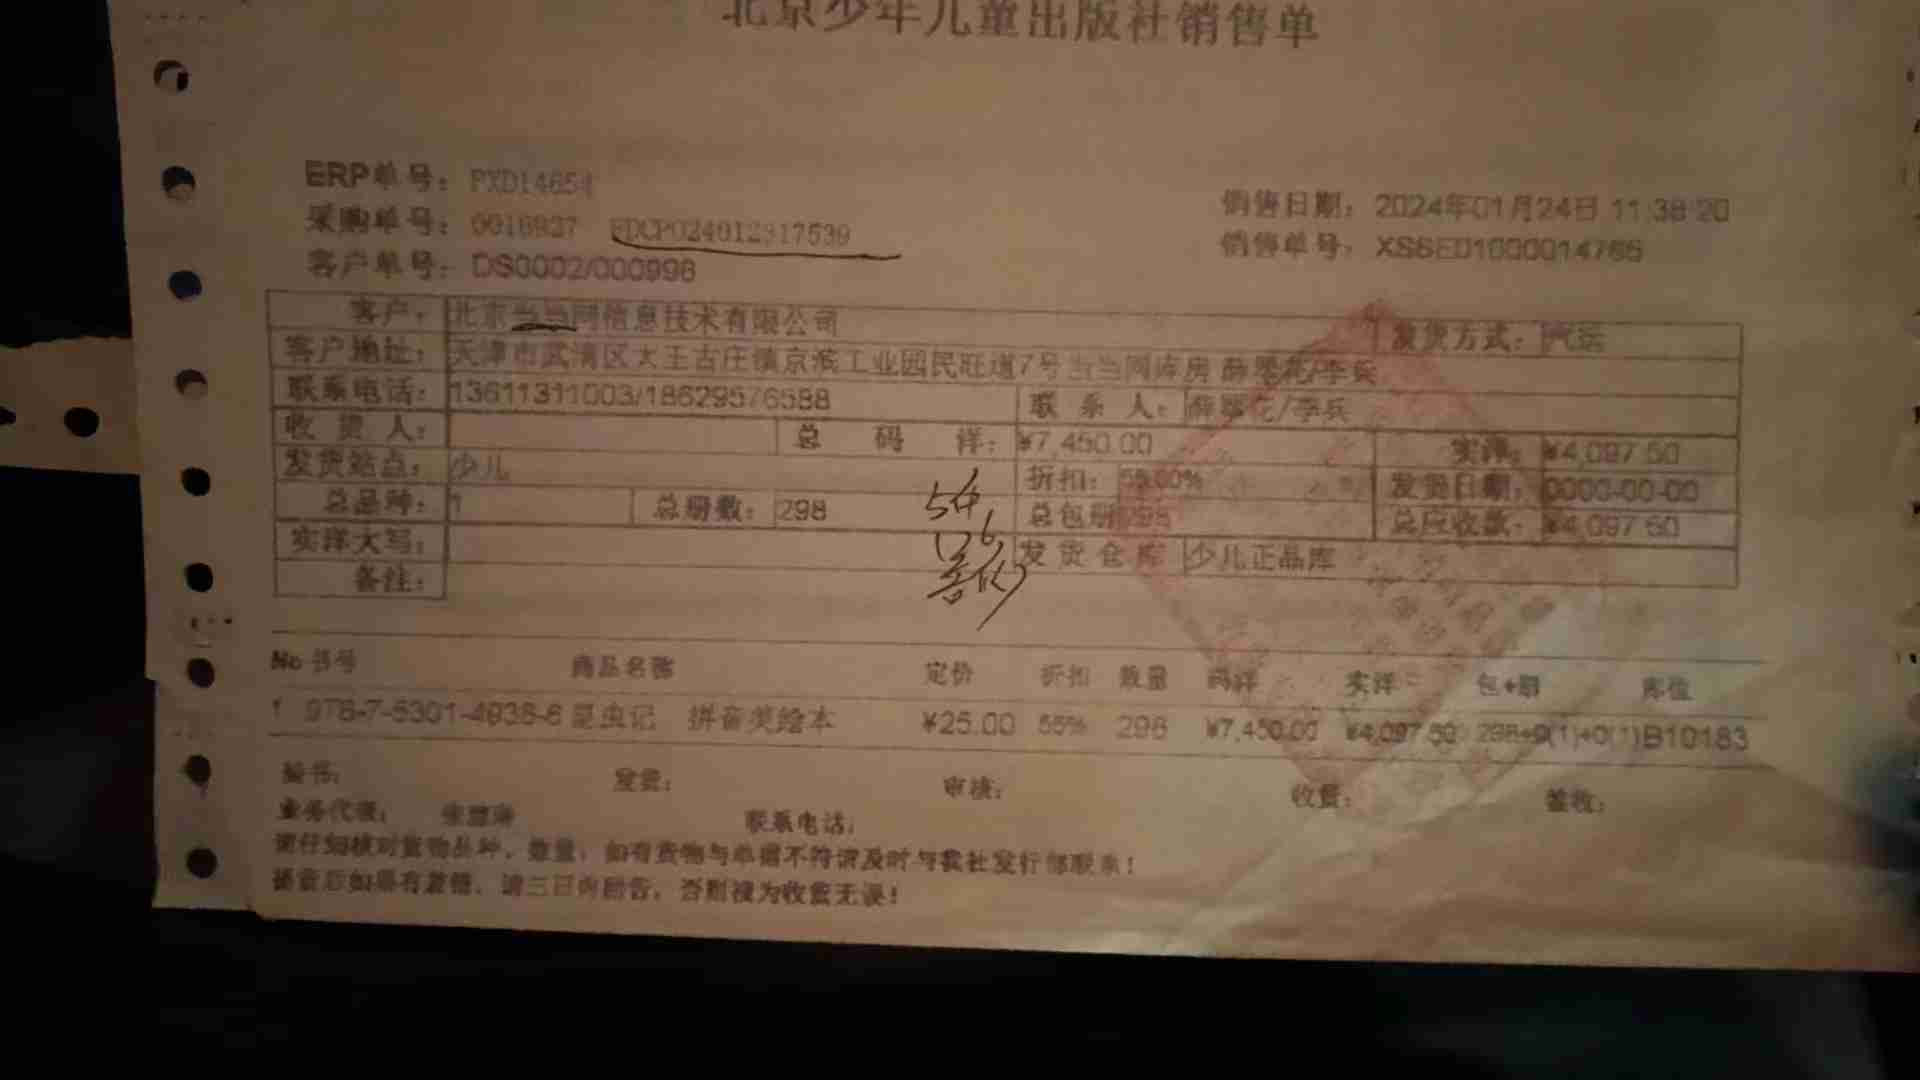 北京少年儿童出版社销售单
ERP单号： PXD14654
销售日期： 2024年01月24日 11:38:20
采购单号： 0016927
销售单号：
客户单号： DS0002/000998
客户： 北京当当网信息技术有限公司 发货方式： 汽运
客户地址： 天津市武清区大王古庄镇京滨工业园民旺道7号当当网库房 /李兵
联系电话： 13611311003/18629576588 联 系 人： /李兵
收 货 人： 总 码 洋： ¥7,450.00 实洋： ¥4,097.50
发货站点： 少儿 折扣： 55.00% 发货日期： 0000-00-00
总品种： 1 总册数： 298 总包册 298 总应收款： ¥4,097.50
实洋大写： 发 货 仓 库 少儿正品库
备注：
5件
No 书号 商品名称 定价 折扣 数量 码洋 实洋 包+册 库位
1 978-7-5301-4936-6 昆虫记 拼音美绘本 ¥25.00 55% 298 ¥7,450.00 ¥4,097.50 298+0(1)+0(1) B10183
发货： 审核： 收货： 签收：
业务代表： 联系电话：
请仔细核对货物品种、数量，如有货物与单据不符请及时与我社发行部联系！
收货后如果有差错，请三日内回告，否则视为收货无误！